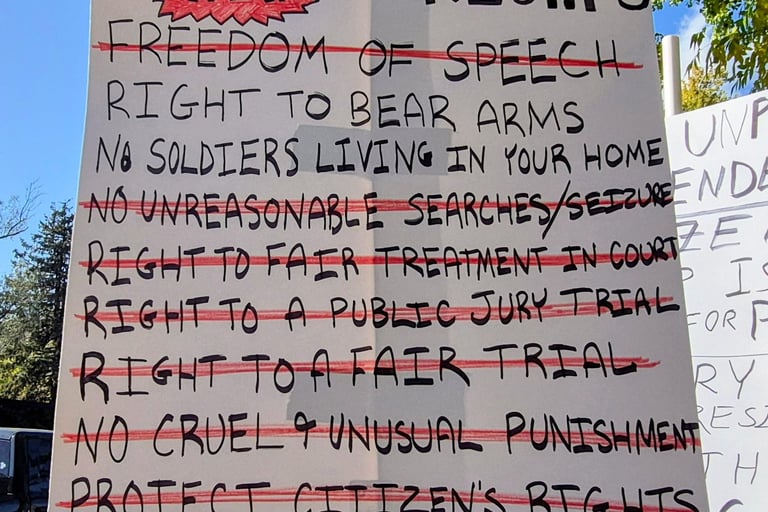 FREEDOM OF SPEECH
RIGHT TO BEAR ARMS
NO SOLDIERS LIVING IN YOUR HOME
NO UNREASONABLE SEARCHES/SEIZURE
RIGHT TO FAIR TREATMENT IN COURT
RIGHT TO A PUBLIC JURY TRIAL
RIGHT TO A FAIR TRIAL
NO CRUEL & UNUSUAL PUNISHMENT
PROTECT CITIZEN'S RIGHTS